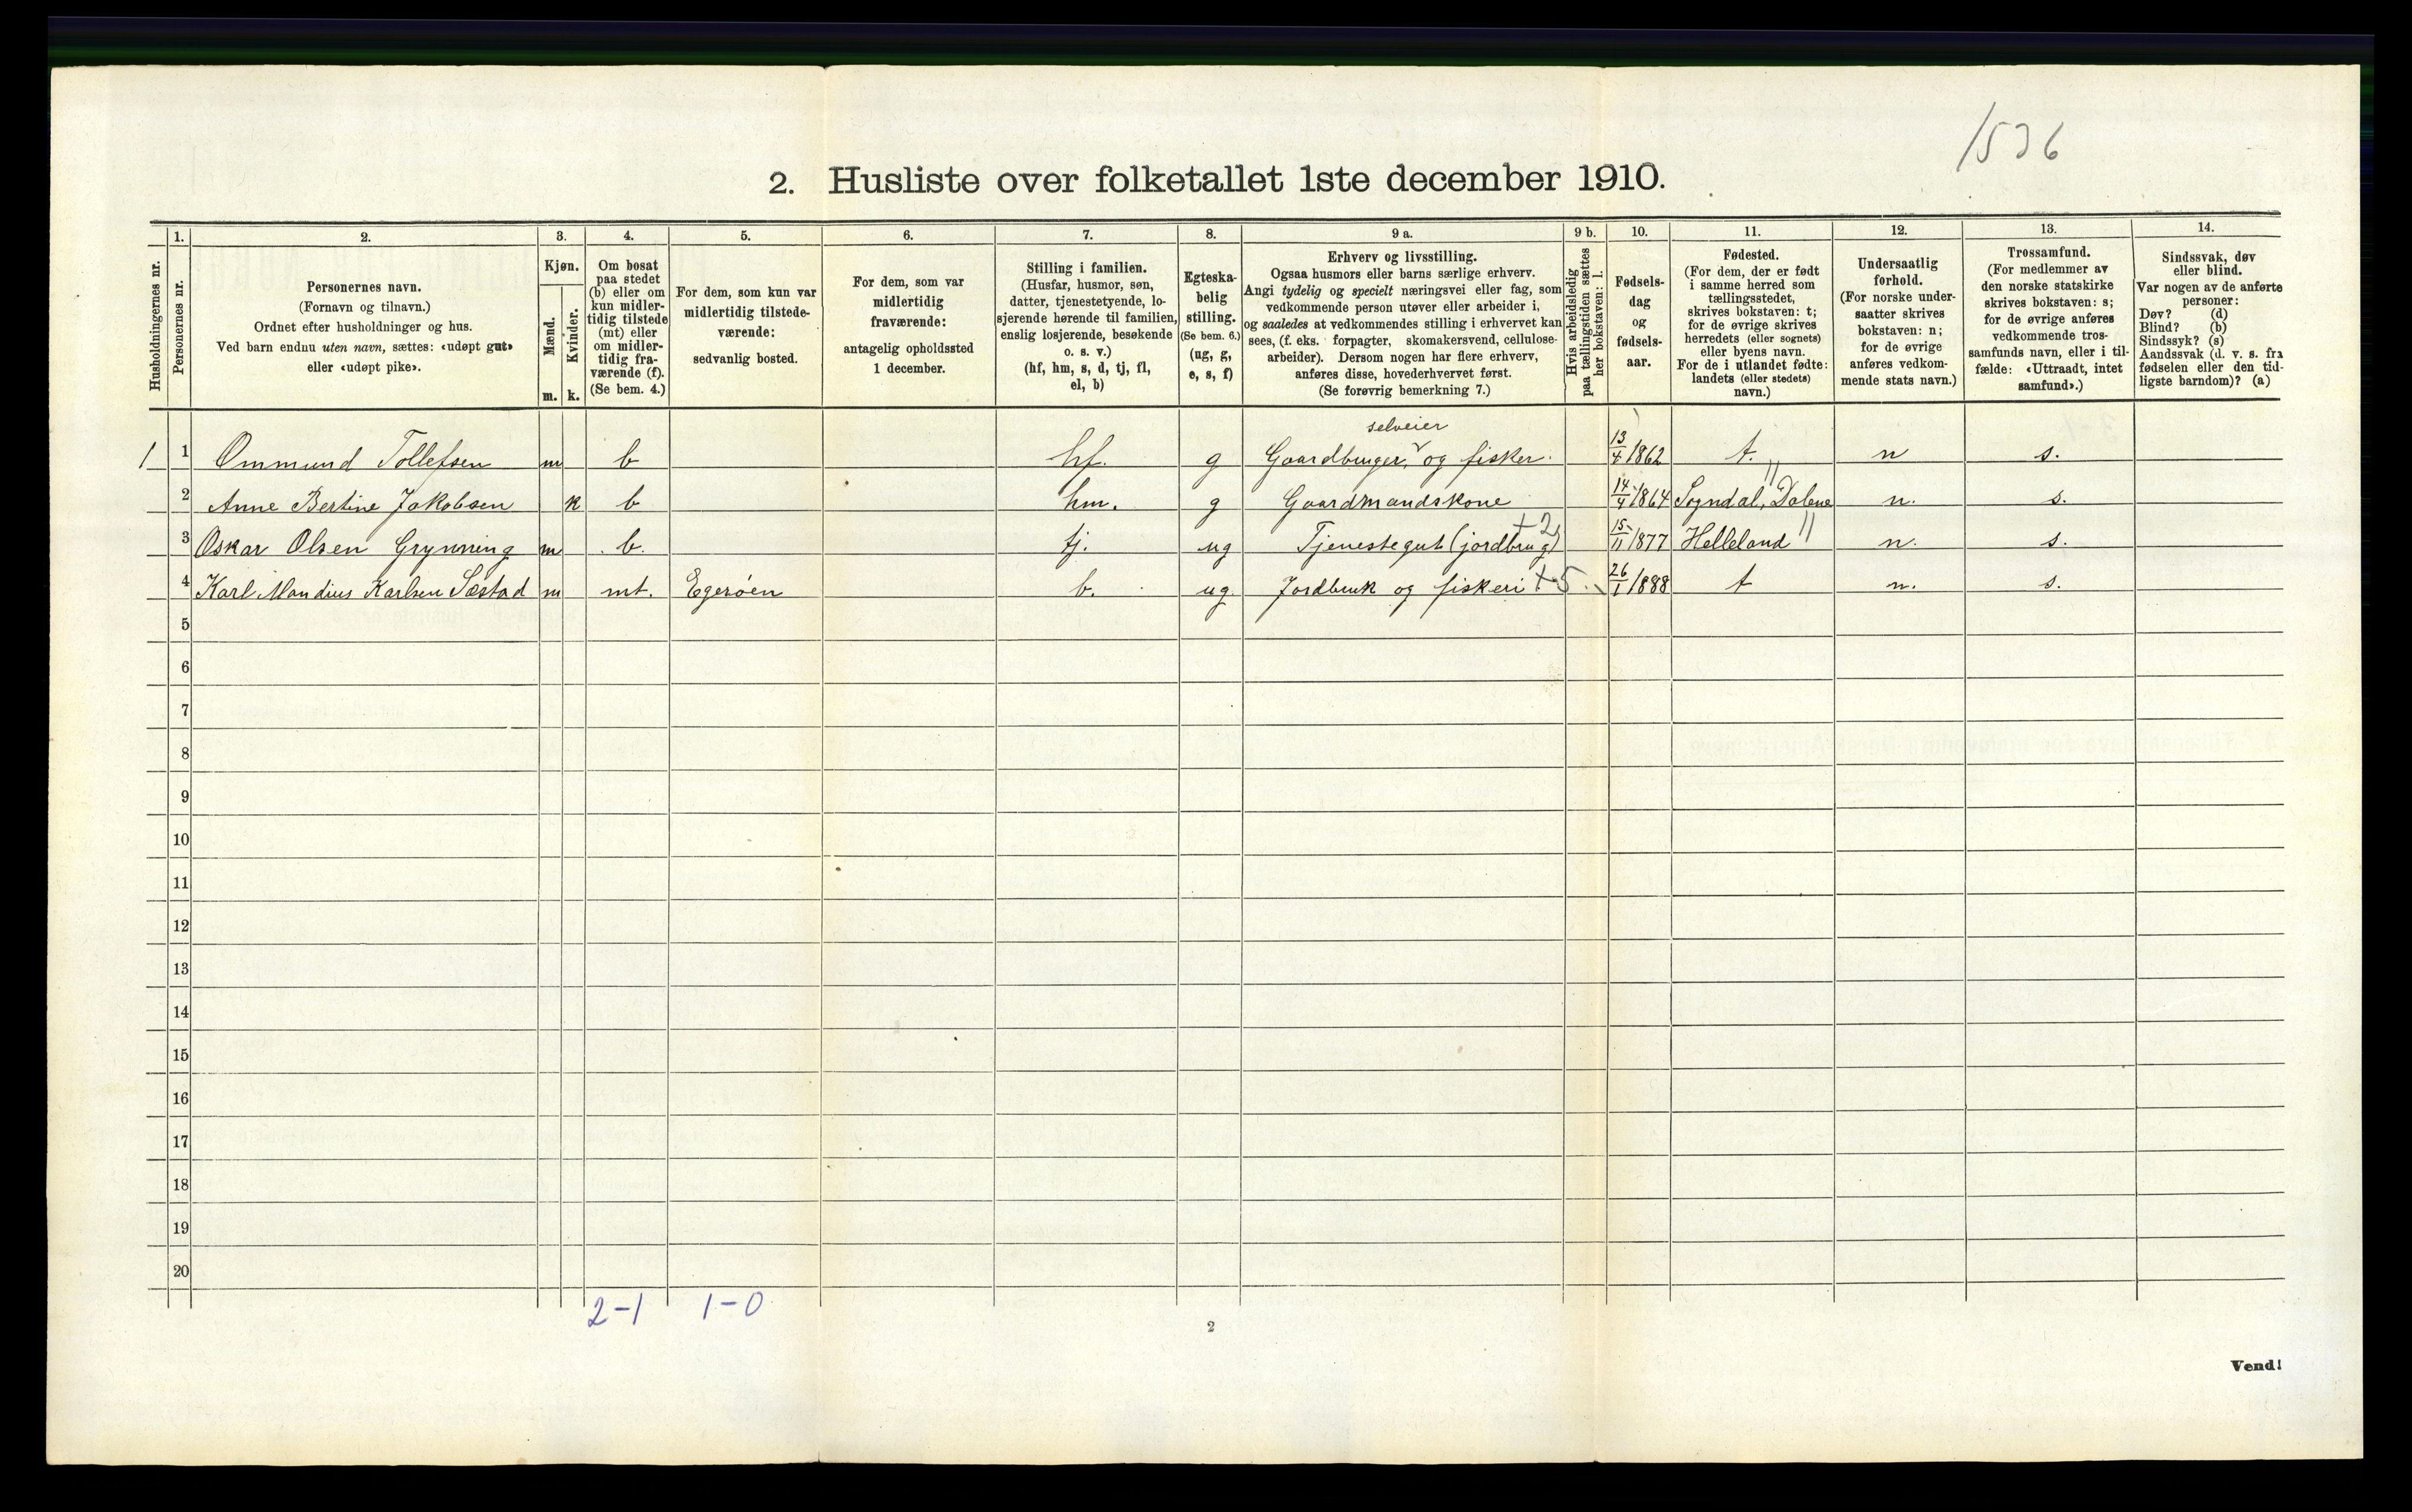 1536
2. Husliste over folketallet 1ste december 1910.
Husholdningernes nr.
1.
Personernes nr.
2.
Personernes navn.
(Fornavn og tilnavn.)
Ordnet efter husholdninger og hus.
Ved barn endnu uten navn, sættes: «udøpt gut»
eller «udøpt pike».
3.
Kjøn.
Mænd.
Kvinder.
m. k.
4.
Om bosat
paa stedet
(b) eller om
kun midler-
tidig tilstede
(mt) eller
om midler-
tidig fra-
værende (f).
(Se bem. 4.)
5.
For dem, som kun var
midlertidig tilstede-
værende:
sedvanlig bosted.
6.
For dem, som var
midlertidig
fraværende:
antagelig opholdssted
1 december.
7.
Stilling i familien.
(Husfar, husmor, søn,
datter, tjenestetyende, lo-
sjerende hørende til familien,
enslig losjerende, besøkende
o. s. v.)
(hf, hm, s, d, tj, fl,
el, b)
8.
Egteska-
belig
stilling.
(Se bem. 6.)
(ug, g,
e, s, f)
9 a.
Erhverv og livsstilling.
Ogsaa husmors eller barns særlige erhverv.
Angi tydelig og specielt næringsvei eller fag, som
vedkommende person utøver eller arbeider i,
og saaledes at vedkommendes stilling i erhvervet kan
sees, (f. eks. forpagter, skomakersvend, cellulose-
arbeider). Dersom nogen har flere erhverv,
anføres disse, hovederhvervet først.
(Se forøvrig bemerkning 7.)
9 b.
Hvis arbeidsledig
paa tællingstiden sættes
her bokstaven: l.
10.
Fødsels-
dag
og
fødsels-
aar.
11.
Fødested.
(For dem, der er født
i samme herred som
tællingsstedet,
skrives bokstaven: t;
for de øvrige skrives
herredets (eller sognets)
eller byens navn.
For de i utlandet fødte:
landets (eller stedets)
navn.)
12.
Undersaatlig
forhold.
(For norske under-
saatter skrives
bokstaven: n;
for de øvrige
anføres vedkom-
mende stats navn.)
13.
Trossamfund.
(For medlemmer av
den norske statskirke
skrives bokstaven: s;
for de øvrige anføres
vedkommende tros-
samfunds navn, eller i til-
fælde: «Uttraadt, intet
samfund».)
14.
Sindssvak, døv
eller blind.
Var nogen av de anførte
personer:
Døv? (d)
Blind? (b)
Sindssyk? (s)
Aandssvak (d. v. s. fra
fødselen eller den tid-
ligste barndom)? (a)
selveier
1 1 Ommund Tollefsen m b hf. g Gaardbruger og fisker. 13/4 1862 t. n s.
2 Anne Bertine Jakobsen k b hm. g Gaardmandskone 14/4 1864 Sogndal, Dalene n. s.
3 Oskar Olsen Grynning m b. tj. ug Tjenestegut (jordbrug) +2 15/11 1877 Helleland n. s.
4 Karl Mandius Karlsen Sæstad m mt. Egerøen b. ug. Jordbruk og fiskeri +5. 26/1 1888 t n. s.
5
6
7
8
9
10
11
12
13
14
15
16
17
18
19
20
2-1 1-0
2
Vend!